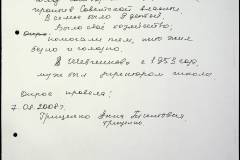 приходом Советской власти
В семье было 9 детей,
Было своё хозяйство,
помогали тем, кто жил
бедно и голодно.
В Шевченково с 1953 года,
муж был директором школы
Опрос провела:
7.08.2008г.
Грищенко Анна
Грищенко